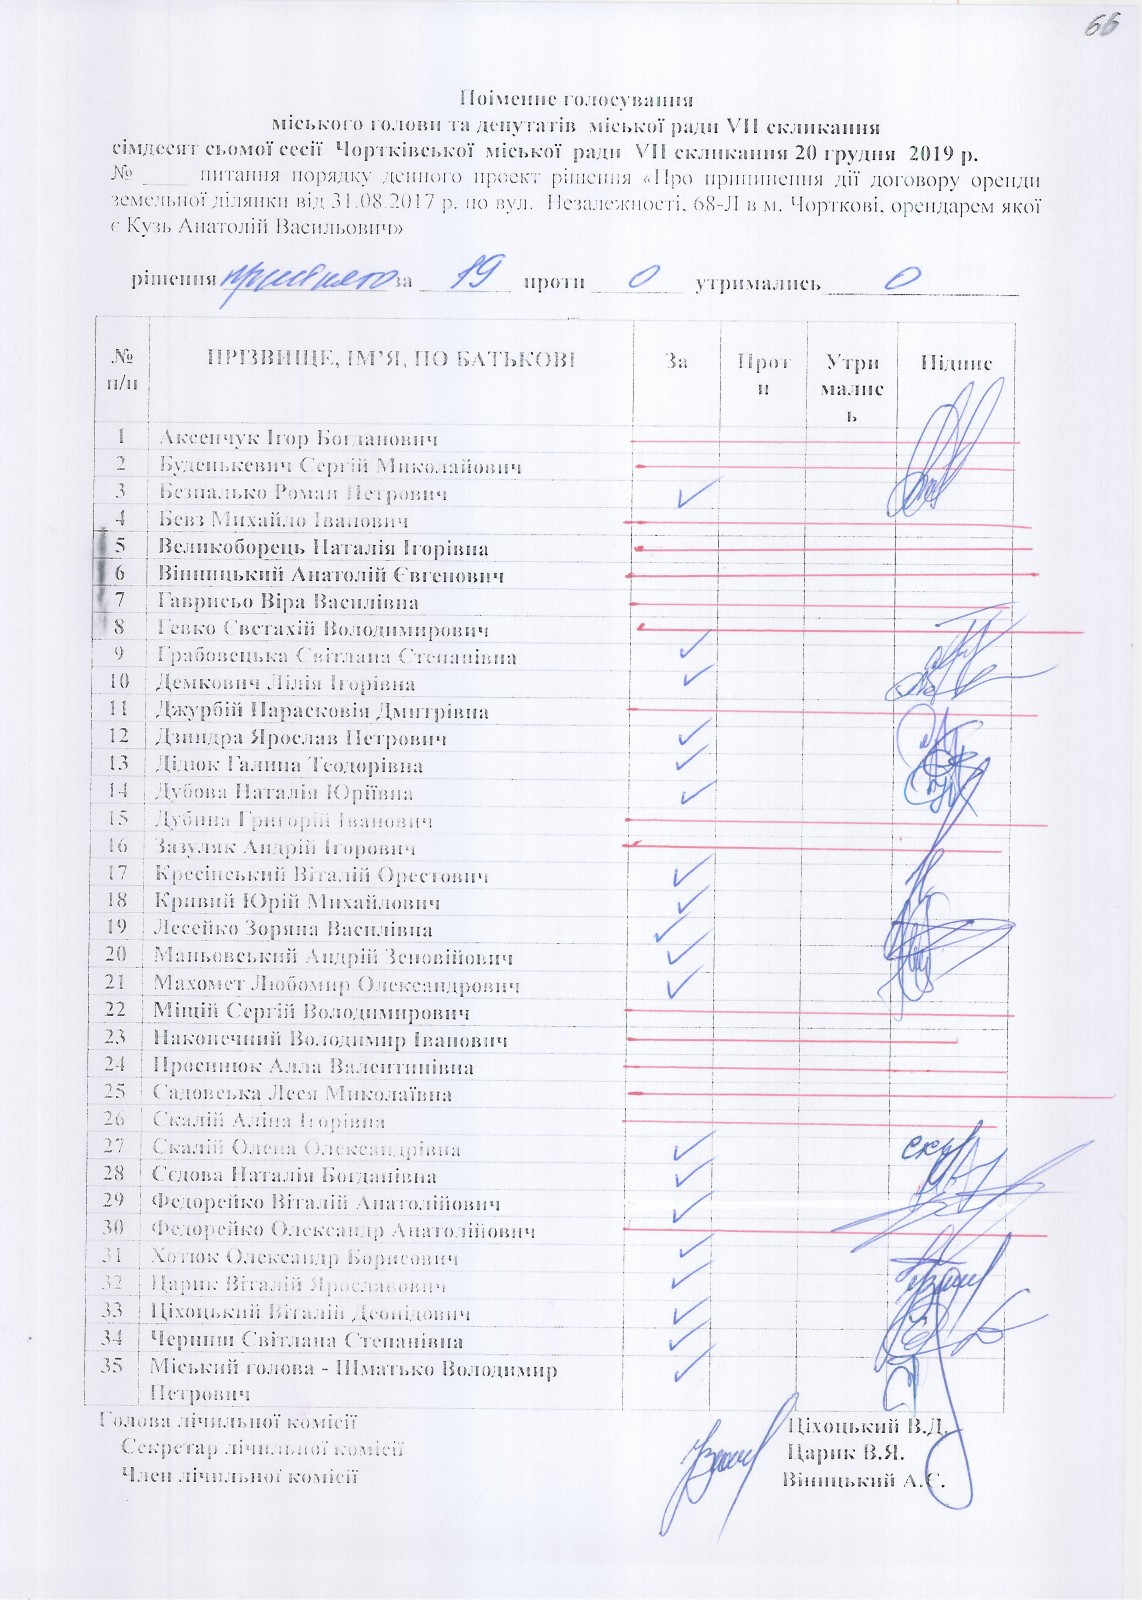 66
Поіменне голосування
міського голови та депутатів міської ради VII скликання
сімдесят сьомої сесії Чортківської міської ради VII скликання 20 грудня 2019 р.
№ ____ питання порядку денного проект рішення «Про припинення дії договору оренди
земельної ділянки від 31.08.2017 р. по вул. Незалежності, 68-Л в м. Чорткові, орендарем якої
є Кузь Анатолій Васильович»
рішення прийнято за 19 проти 0 утримались 0
№ п/п ПРІЗВИЩЕ, ІМ'Я, ПО БАТЬКОВІ За Проти Утрималсь Підпис
1 Аксенчук Ігор Богданович
2 Буденькевич Сергій Миколайович
3 Безпалько Роман Петрович ✓
4 Бевз Михайло Іванович
5 Великоборець Наталія Ігорівна
6 Вінницький Анатолій Євгенович
7 Гаврисьо Віра Василівна
8 Гевко Євстахій Володимирович
9 Грабовецька Світлана Степанівна ✓
10 Демкович Лілія Ігорівна ✓
11 Джурбій Парасковія Дмитрівна
12 Дзиндра Ярослав Петрович ✓
13 Дідюк Галина Теодорівна ✓
14 Дубова Наталія Юріївна ✓
15 Дубина Григорій Іванович
16 Зазуляк Андрій Ігорович
17 Кресінський Віталій Орестович ✓
18 Кривий Юрій Михайлович ✓
19 Лесейко Зоряна Василівна ✓
20 Маньовський Андрій Зеновійович ✓
21 Махомет Любомир Олександрович ✓
22 Міщій Сергій Володимирович
23 Наконечний Володимир Іванович
24 Просинюк Алла Валентинівна
25 Садовська Леся Миколаївна
26 Скалій Аліна Ігорівна
27 Скалій Олена Олександрівна ✓
28 Сєдова Наталія Богданівна ✓
29 Федорейко Віталій Анатолійович ✓
30 Федорейко Олександр Анатолійович
31 Хотюк Олександр Борисович ✓
32 Царик Віталій Ярославович ✓
33 Ціхоцький Віталій Леонідович ✓
34 Черниш Світлана Степанівна ✓
35 Міський голова - Шматько Володимир ✓
Петрович
Голова лічильної комісії Ціхоцький В.Д.
Секретар лічильної комісії Царик В.Я.
Член лічильної комісії Віницький А.Є.